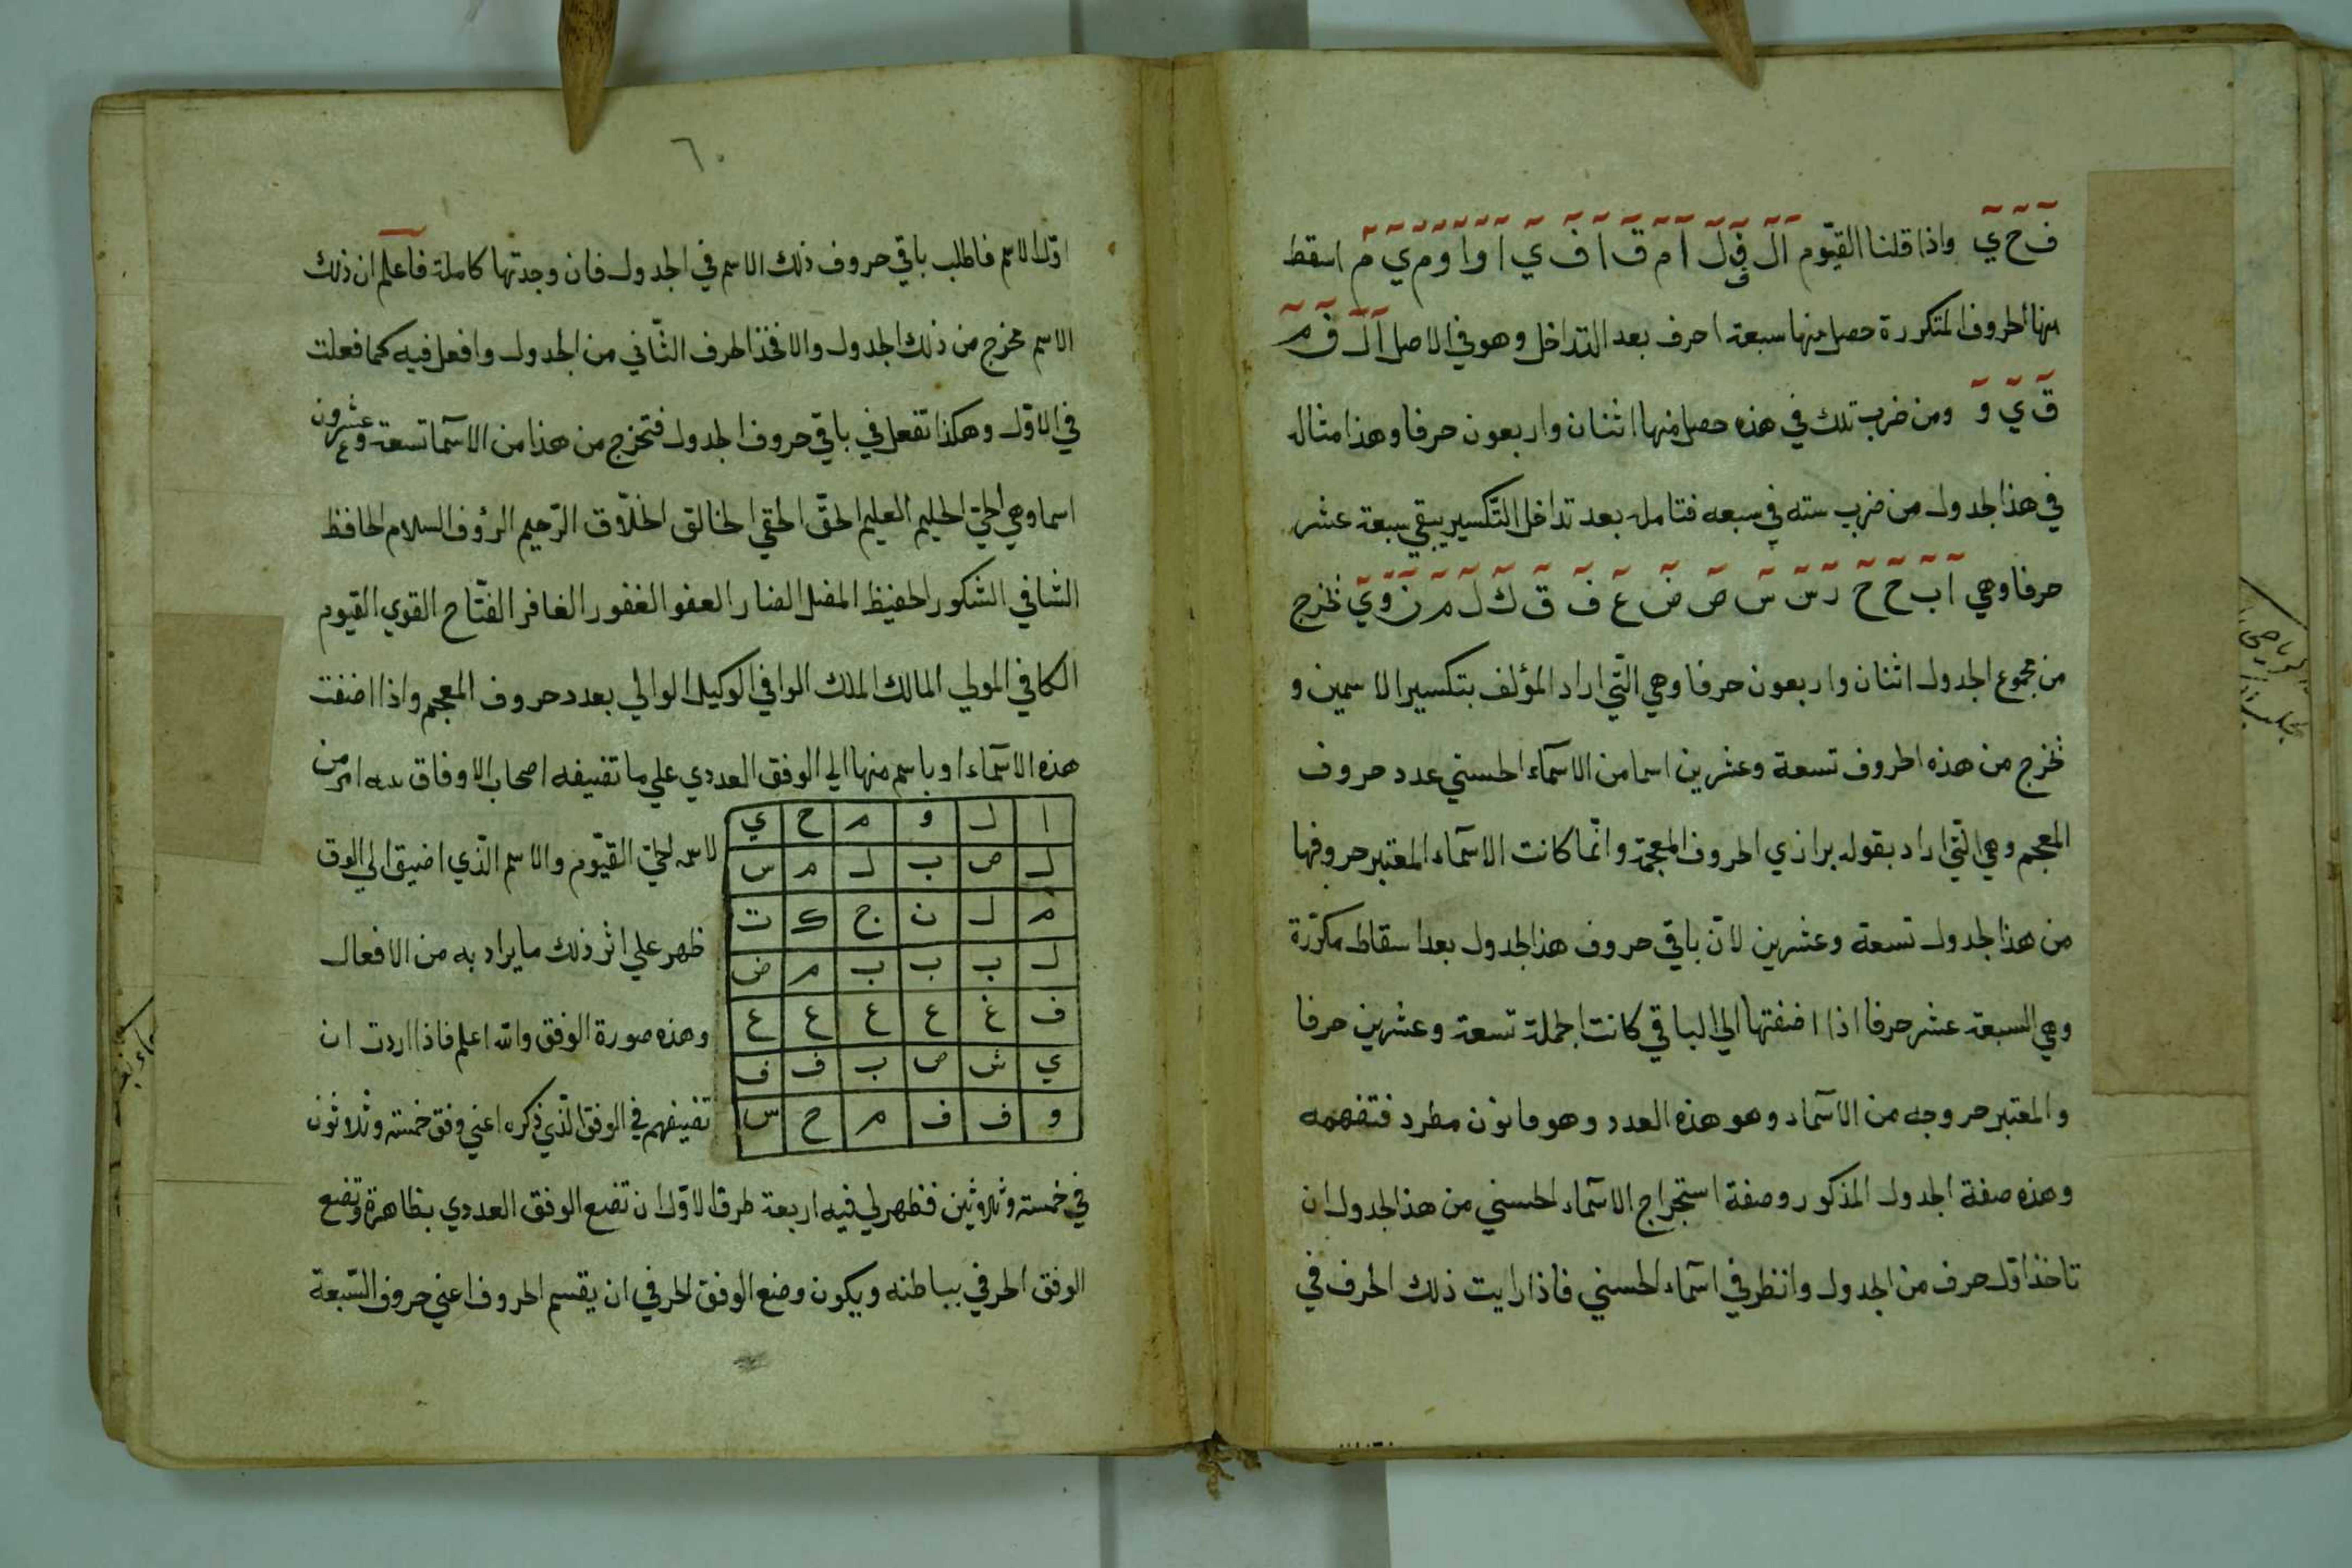 ف ح ي واذا قلنا القيّوم ا ل ق ل ا م ق ا ف ي ا و ا و م ي م اسقط
منها الحروف المتكررة حصل منها سبعة احرف بعد التداخل وهو في الاصل ا ل ف م
ق ي و ومن ضرب تلك في هذه حصل منها اثنان واربعون حرفا وهذا مثاله
في هذا الجدول من ضرب سته في سبعه فتامله بعد تداخل التكسير يبقي سبعة عشر
حرفا وهي ا ب ح ح د س س ص ض ع ف ق ك ل م ن و ي فخرج
من مجموع الجدول اثنان واربعون حرفا وهي الّتي اراد المؤلف بتكسير الاسمين و
تخرج من هذه الحروف تسعة وعشرين اسما من الاسمآء الحسني عدد حروف
المعجم وهي الّتي اراد بقوله برازي الحروف المعجمة وانّما كانت الاسمآء المعتبر حروفها
من هذا الجدول تسعة وعشرين لانّ باقي حروف هذا الجدول بعد اسقاط مكرّرة
وهي السبعة عشر حرفا اذا اضفتها الي الباقي كانت الجملة تسعة وعشرين حرفا
والمعتبر حروجه من الاسماء وهو هذه العدد وهو قانون مطرد فتفهمه
وهذه صفة الجدول المذكور وصفة استخراج الاسماء الحسني من هذا الجدول ان
تاخذ اوّل حرف من الجدول وانظر في اسماء الحسني فاذا رايت ذلك الحرف في
٦٠
اوّل الاسم فاطلب باقي حروف ذلك الاسم في الجدول فان وجدتها كاملة فاعلم ان ذلك
الاسم مخرج من ذلك الجدول والا فخذ الحرف الثّاني من الجدول وافعل فيه كما فعلت
في الاوّل وهكذا تفعل في باقي حروف الجدول فتخرج من هذا من الاسما تسعة وعشرون
اسما وهي الحيّ الحليم العليم الحقّ الحقي الخالق الخلّاق الرّحيم الرؤف السلام الحافظ
الشافي الشكور الحفيظ المفضل الضار العفو الغفور الغافر الفتّاح القوي القيوم
الكافي المولي المالك الملك الوافي الوكيل الوالي بعدد حروف المعجم واذا اضفت
هذه الاسمآء او باسم منها الي الوفق العددي علي ما تضيفه اصحاب الاوفاق به امر من
ا ل و م ح ي
ل ص ب ل م س
م ل ن ج ك ت
ل ب ب ب م ض
ف غ ع ع ع ع
ي ش ص ب ف ف
و ف ف م ح س
الحيّ القيّوم والاسم الّذي اضيق الي الوفق
ظهر علي اثر ذلك ما يراد به من الافعال
وهذه صورة الوفق والله اعلم فاذا اردت ان
تضيفهم في الوفق الّذي ذكره اعني وفق خمسة وثلاثون
في خمسة وثلاثين فظهر لي فيه اربعة طرق الاوّل ان تضع الوفق العددي بظاهرة وتضع
الوفق الحرفي بباطنه ويكون وضع الوفق الحرفي ان يقسم الحروف اعني حروف السّبعة